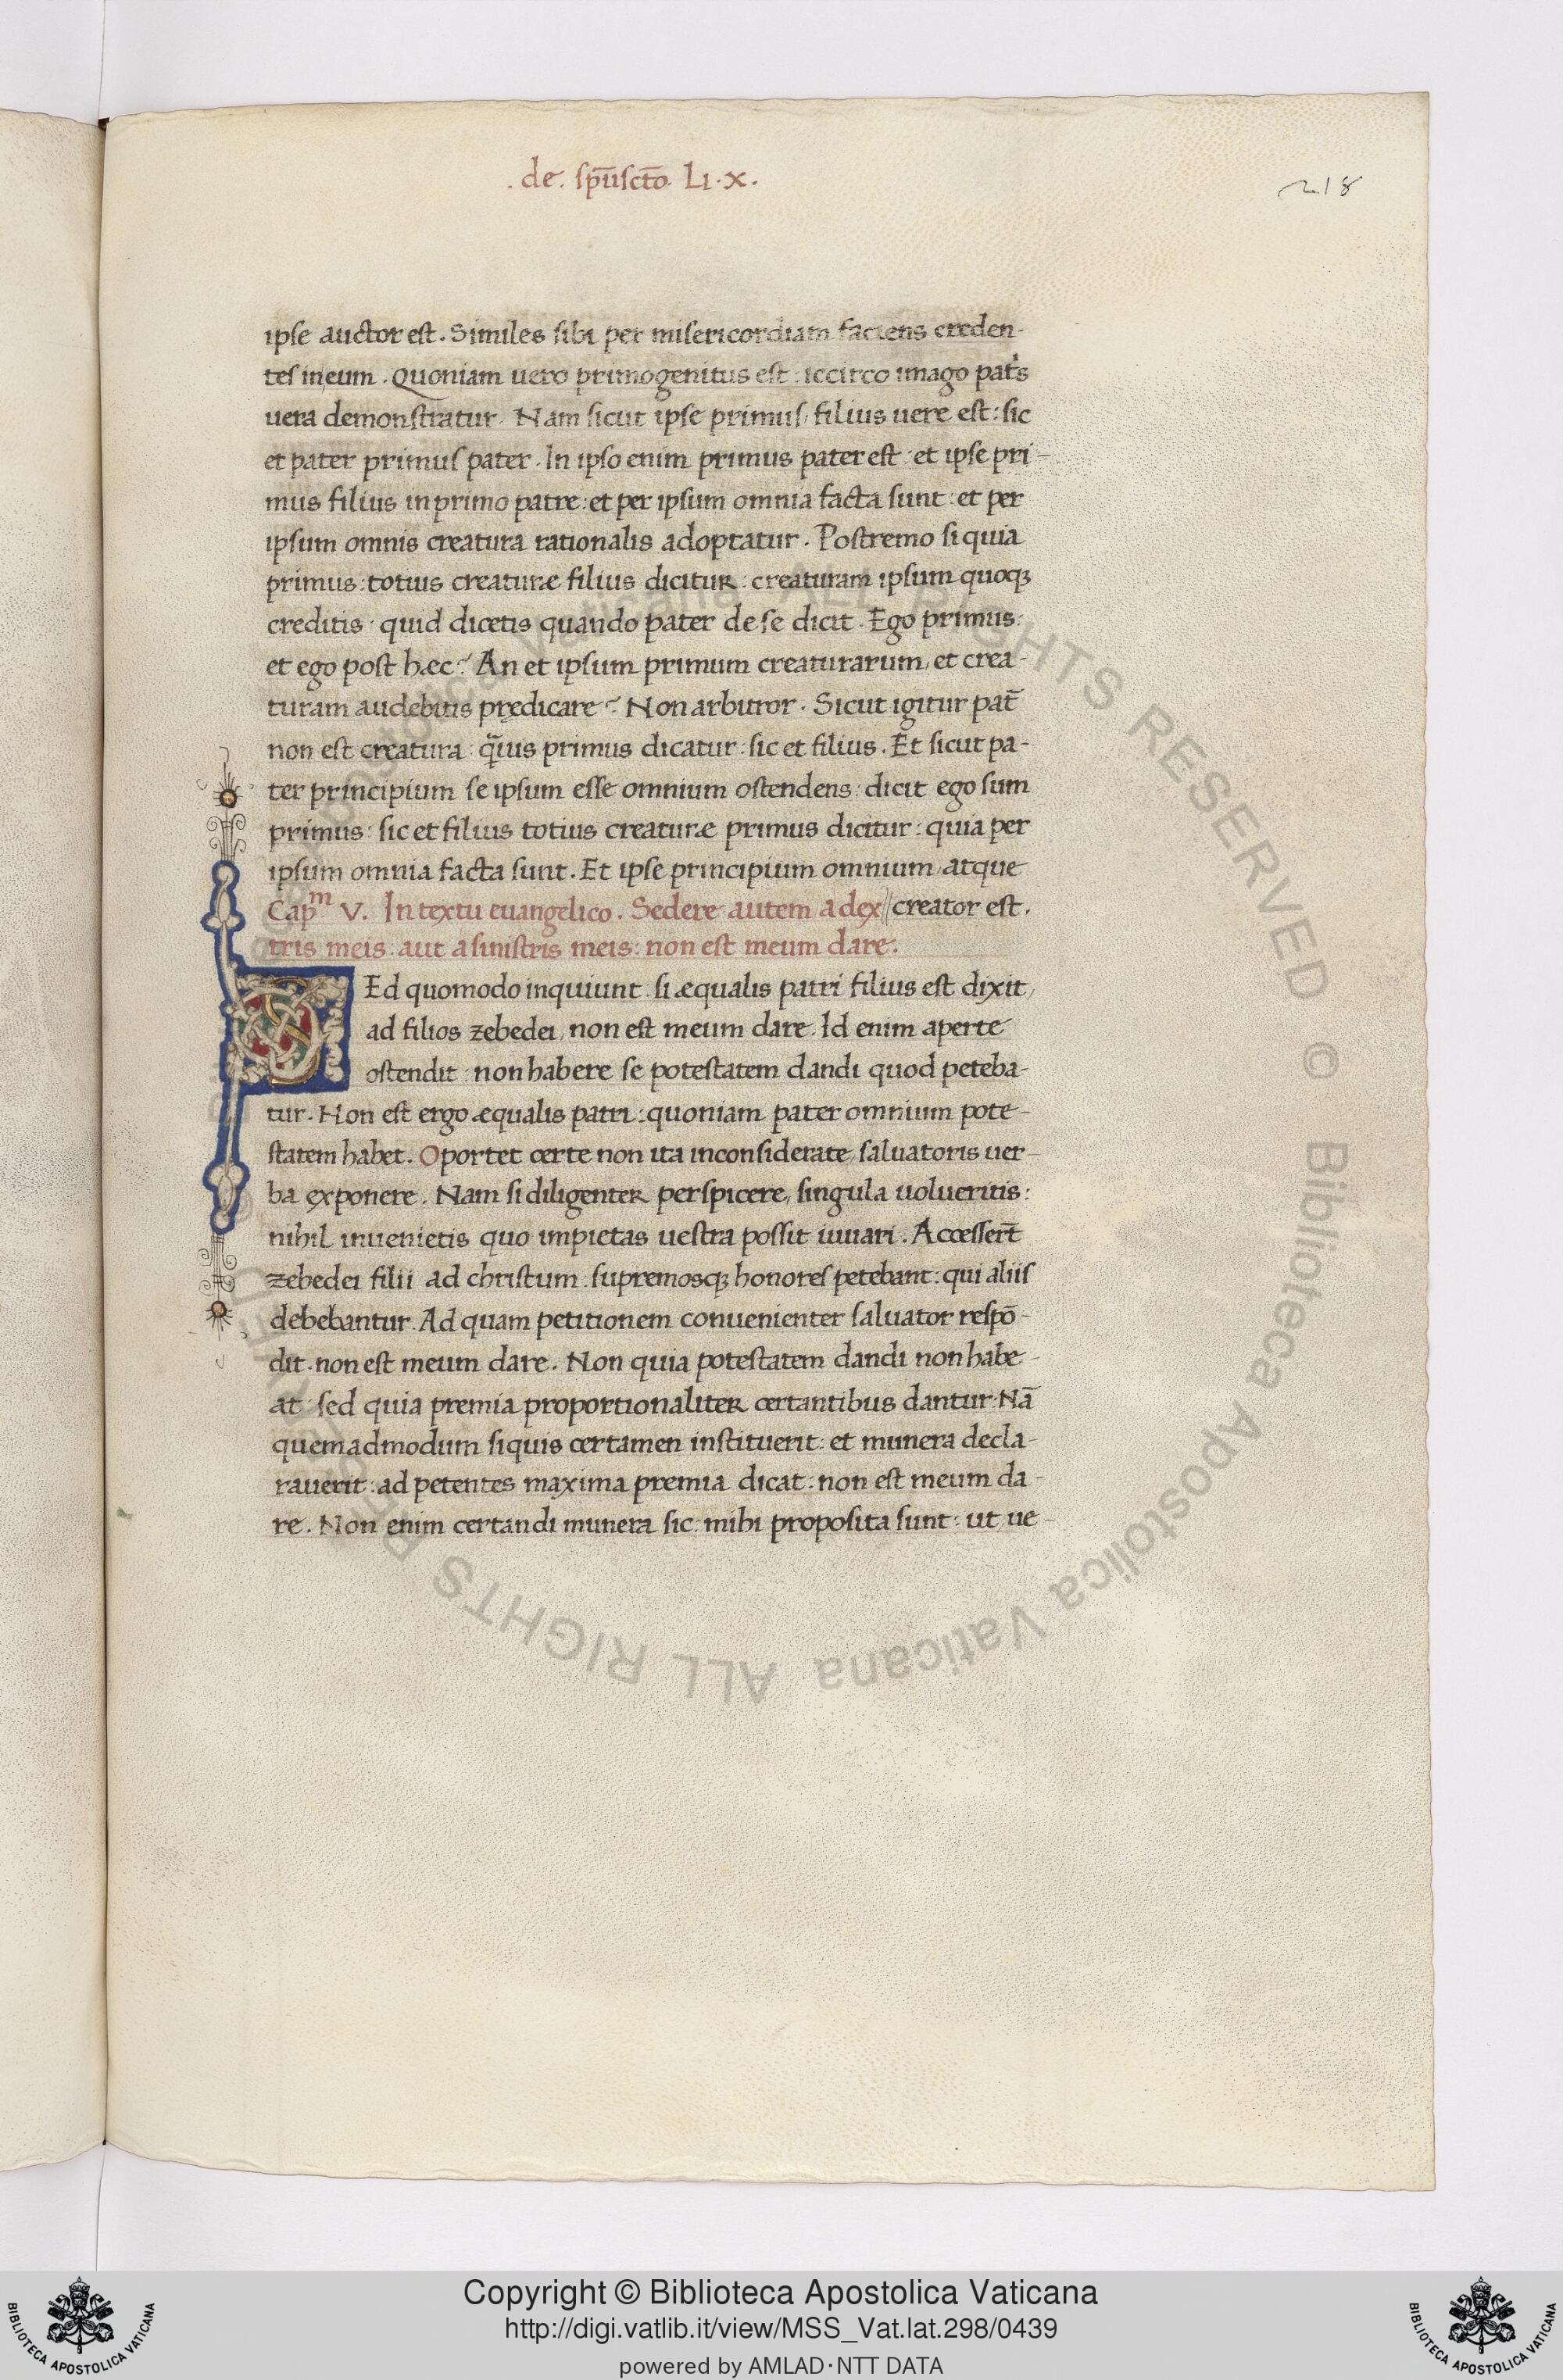 .de. sp̄uscto̅. Li.x.
218
ipse auctor est. Similes sibi per misericordiam faciens creden-
tes in eum. Quoniam uero primogenitus est: iccirco imago pat̓s
uera demonstratur. Nam sicut ipse primus, filius uere est: sic
et pater primus pater. In ipso enim primus pater est: et ipse pri-
mus filius in primo patre: et per ipsum omnia facta sunt: et per
ipsum omnis creatura rationalis adoptatur. Postremo si quia
primus: totius creaturæ filius dicitur: creaturam ipsum quoqꝫ
creditis: quid dicetis quando pater de se dicit. Ego primus:
et ego post hæc? An et ipsum primum creaturarum, et crea-
turam audebitis prędicare? Non arbitror. Sicut igitur pat̄
non est creatura: q̄uis primus dicatur: sic et filius. Et sicut pa-
ter principium se ipsum esse omnium ostendens: dicit ego sum
primus: sic et filius totius creaturæ primus dicitur: quia per
ipsum omnia facta sunt. Et ipse principium omnium, atque
Capᵐ V. In textu euangelico. Sedere autem a dex//creator est.
tris meis: aut a sinistris meis: non est meum dare.
SEd quomodo inquiunt si æqualis patri filius est dixit,
ad filios zebedei, non est meum dare. Id enim aperte
ostendit: non habere se potestatem dandi quod peteba-
tur. Non est ergo æqualis patri: quoniam pater omnium pote-
statem habet. Oportet certe non ita inconsiderate, saluatoris uer-
ba exponere. Nam si diligenter perspicere, singula uolueritis:
nihil inuenietis quo impietas uestra possit iuuari. Accessert̄
zebedei filii ad christum: supremosqꝫ honores petebant: qui aliis
debebantur. Ad quam petitionem conuenienter saluator respō-
dit. non est meum dare. Non quia potestatem dandi non habe-
at: sed quia premia proportionaliter certantibus dantur. Nā
quemadmodum siquis certamen instituerit: et munera decla-
rauerit: ad petentes maxima premia dicat: non est meum da-
re. Non enim certandi munera sic: mihi proposita sunt: ut ue-
Biblioteca Apostolica Vaticana ALL RIGHTS RESERVED ©
Copyright © Biblioteca Apostolica Vaticana
http://digi.vatlib.it/view/MSS_Vat.lat.298/0439
powered by AMLAD·NTT DATA
BIBLIOTECA APOSTOLICA VATICANA
BIBLIOTECA APOSTOLICA VATICANA